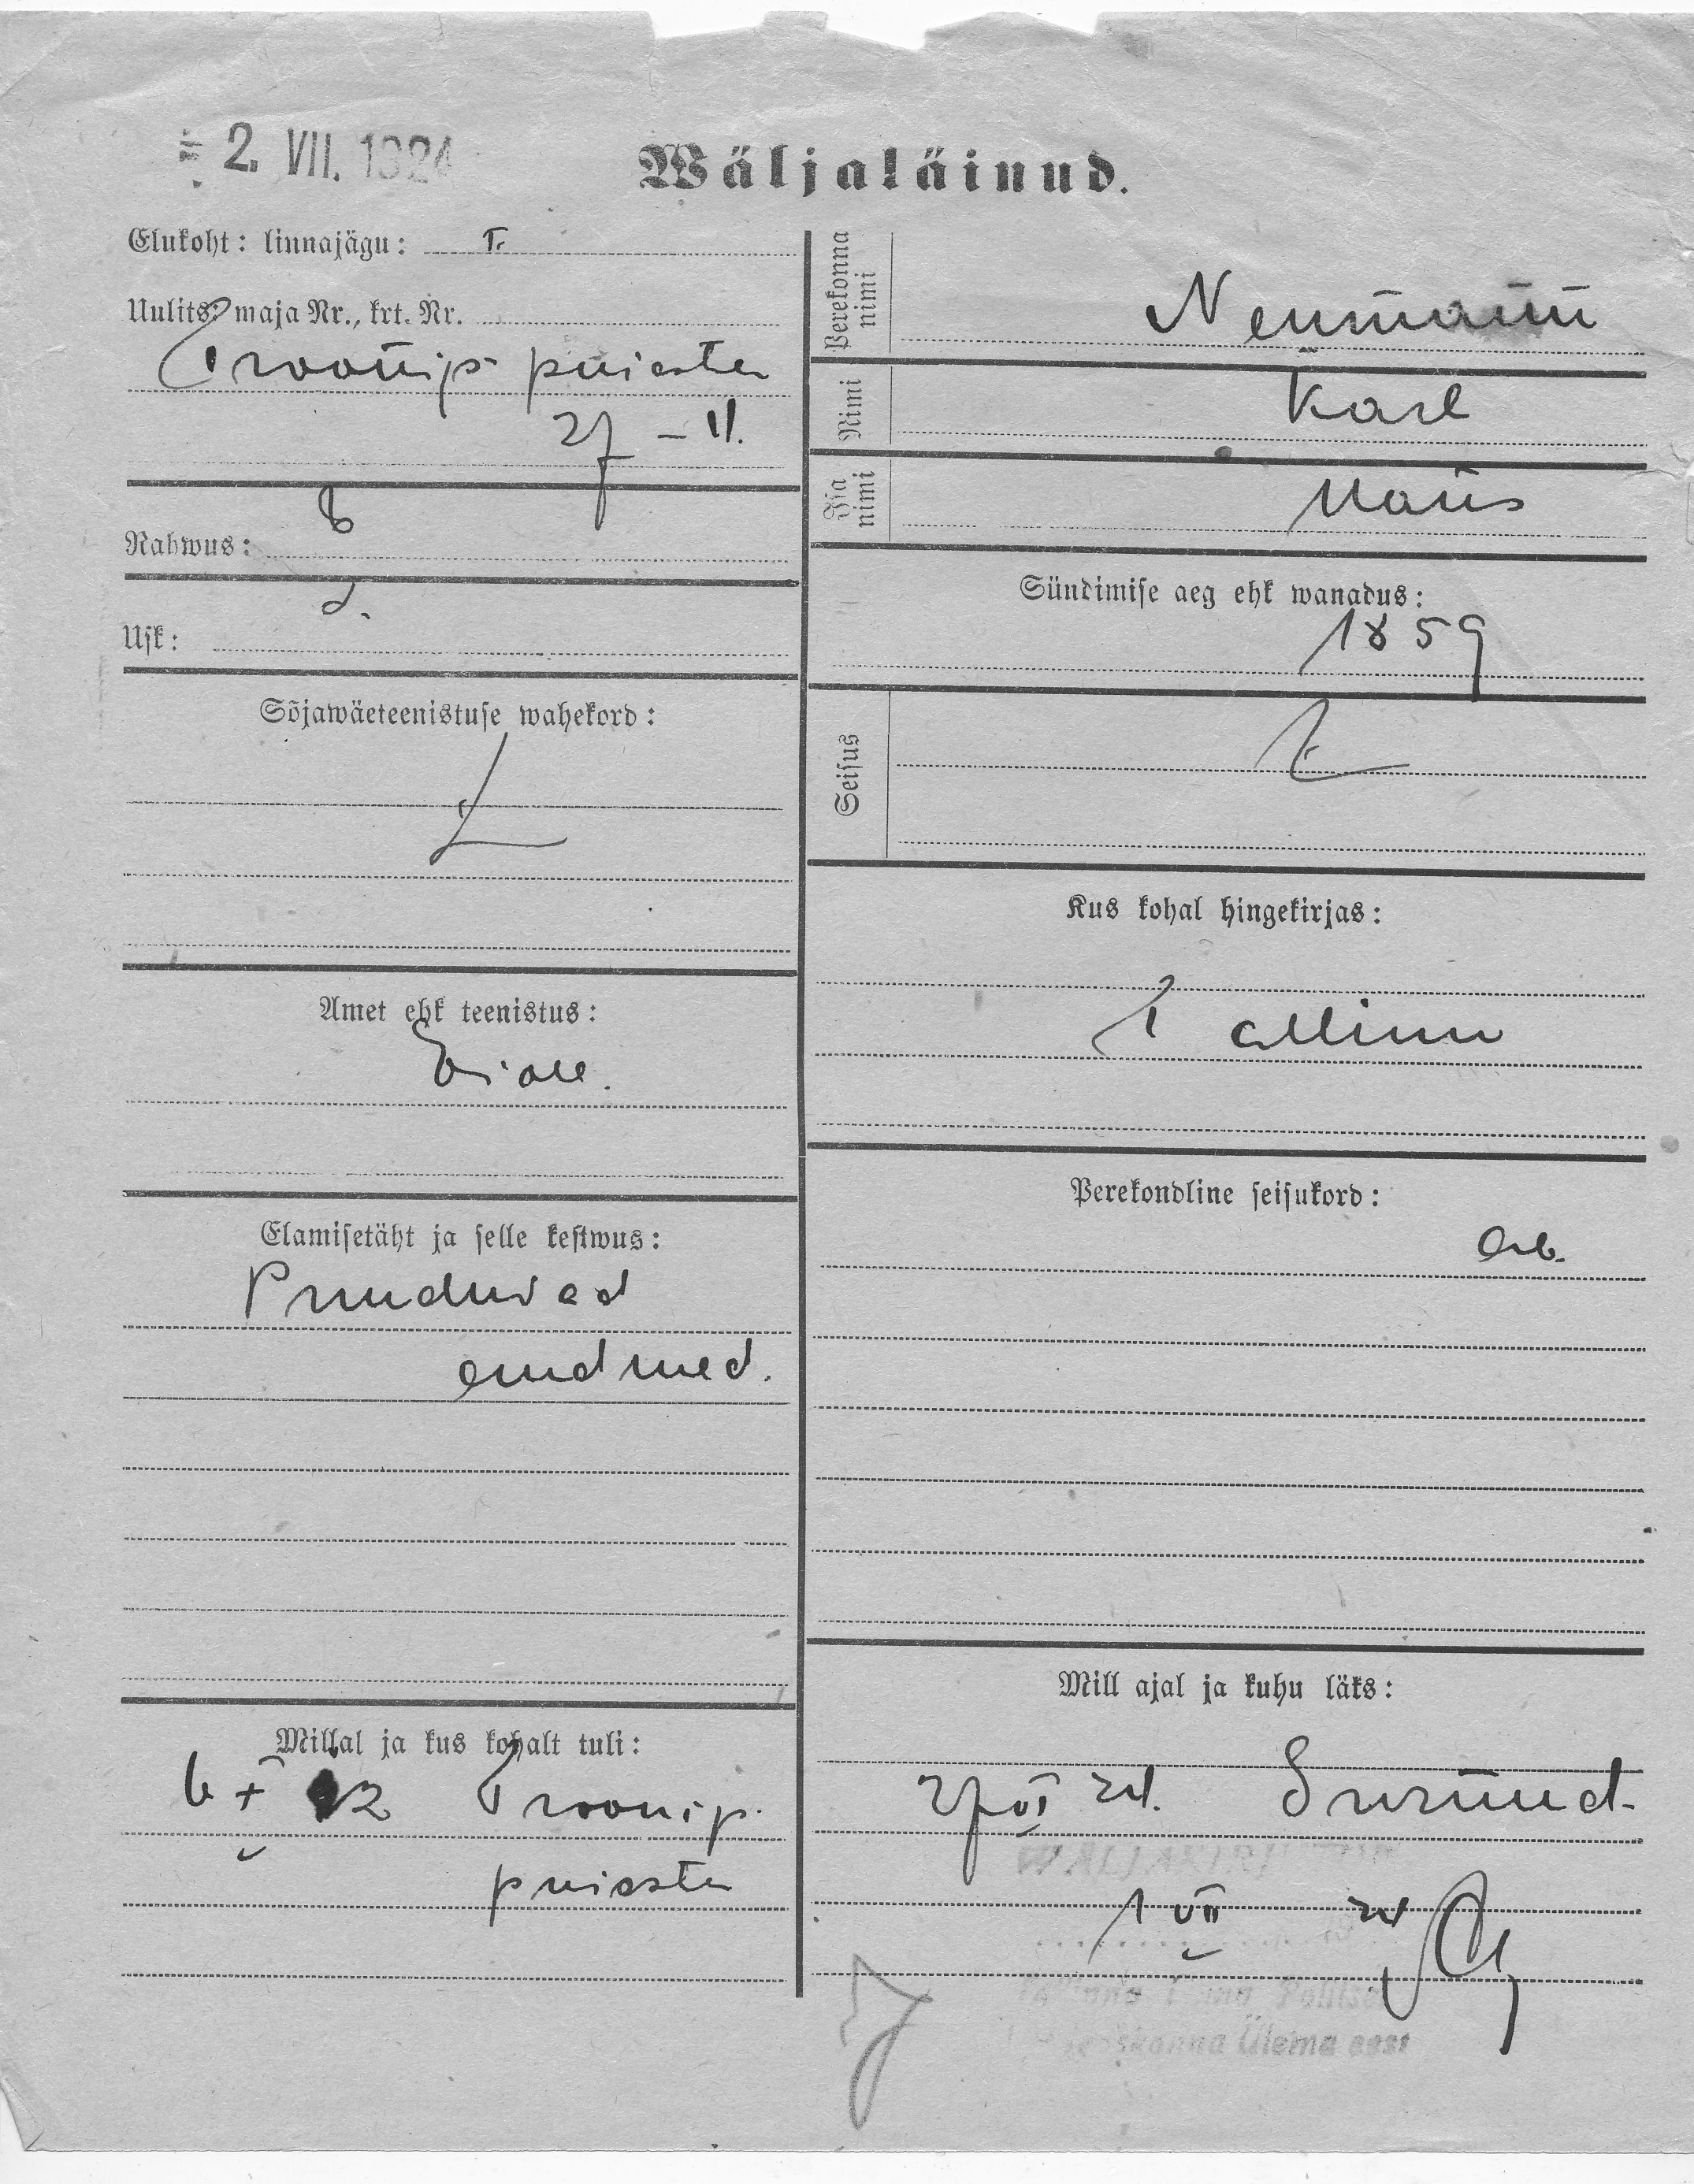 2. VII. 1924
Wäljaläinud.
Elukoht: linnajägu: I.
Uulits, maja Nr., krt. Nr.
Troonip puiestee
27 – 11.
Rahwus: E
Usk: L.
Sõjawäeteenistuse wahekord:
Amet ehk teenistus:
Ei ole.
Elamisetäht ja selle kestwus:
Puuduwad
andmed.
Millal ja kus kohalt tuli:
6 X 22 Troonip.
puiestee
Perekonna nimi
Neumann
Nimi
Karl
Isa nimi
Maris
Sündimise aeg ehk wanadus:
1859
Seisus
Kus kohal hingekirjas:
Tallinn
Perekondline seisukord:
Mill ajal ja kuhu läks:
27 VI 24. Surnud.
WÄLJAKIRJ
1 VII 24
Politsei
jaoskonna Ülema eest